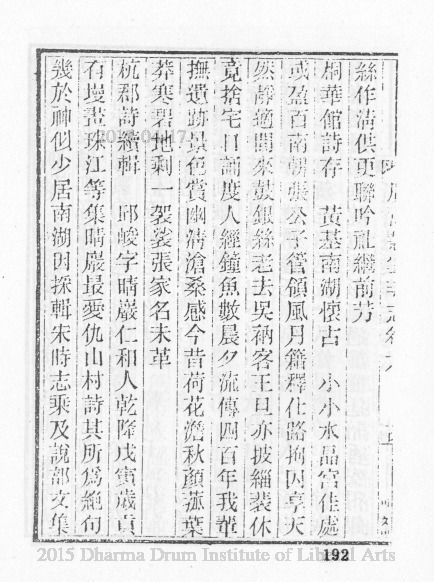 絲作清供更聯吟社繼前芳
桐華館詩存　黃基南湖懷古　小小水晶宮佳處
或盈百南朝張公子管領風月籍釋仕路拘囚享天
然靜適閒來鼓銀絲老去吳衲客王旦亦披緇裴休
竟捨宅口誦度人經鐘魚數晨夕流傳四百年我輩
撫遺跡景色賞幽清滄桑感今昔荷花澹秋顏菰葉
莽寒碧地剩一袈裟張家名未革
杭郡詩續輯　邱峻字晴巖仁和人乾隆戊寅歲貢
有墁畫珠江等集晴巖最愛仇山村詩其所爲絕句
幾於神似少居南湖因採輯宋時志乘及說部文集
192
2015 Dharma Drum Institute of Liberal Arts